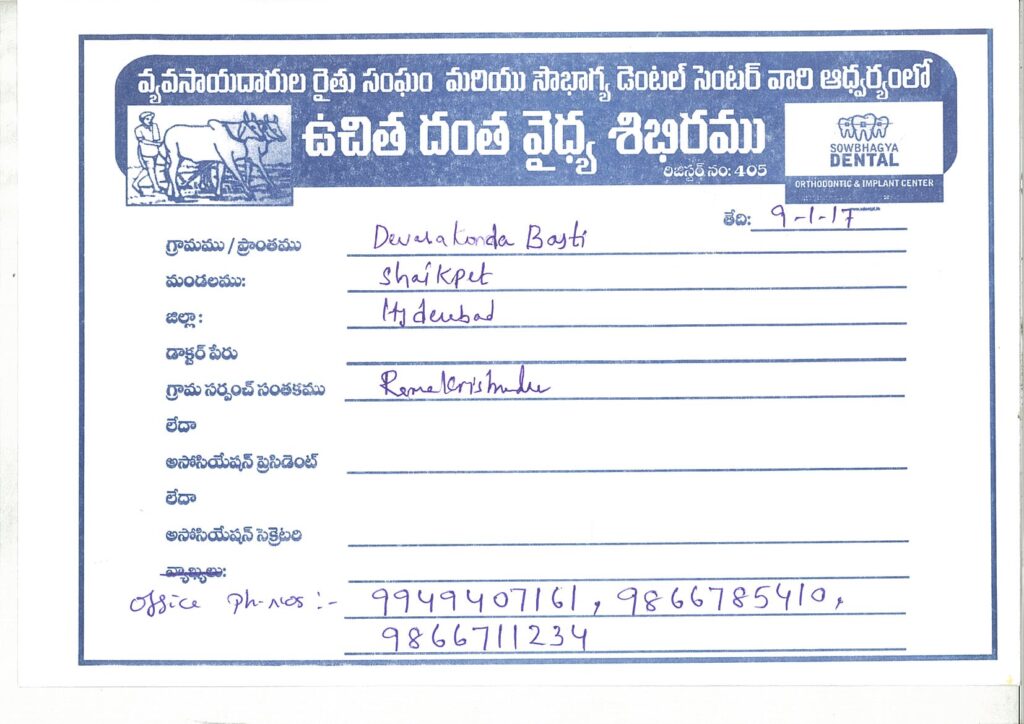 వ్యవసాయదారుల రైతు సంఘం మరియు సౌభాగ్య డెంటల్ సెంటర్ వారి ఆధ్వర్యంలో
ఉచిత దంత వైధ్య శిభిరము
రిజిస్టర్ నం: 405
SOWBHAGYA
DENTAL
ORTHODONTIC & IMPLANT CENTER
తేది: 9-1-17
గ్రామము / ప్రాంతము Devarakonda Basti
మండలము: Shaikpet
జిల్లా : Hyderabad
డాక్టర్ పేరు
గ్రామ సర్పంచ్ సంతకము Ramakrishnudu
లేదా
అసోసియేషన్ ప్రెసిడెంట్
లేదా
అసోసియేషన్ సెక్రెటరి
వ్యాఖ్యలు:
Office Ph-nos :- 9949407161, 9866785410,
9866711234